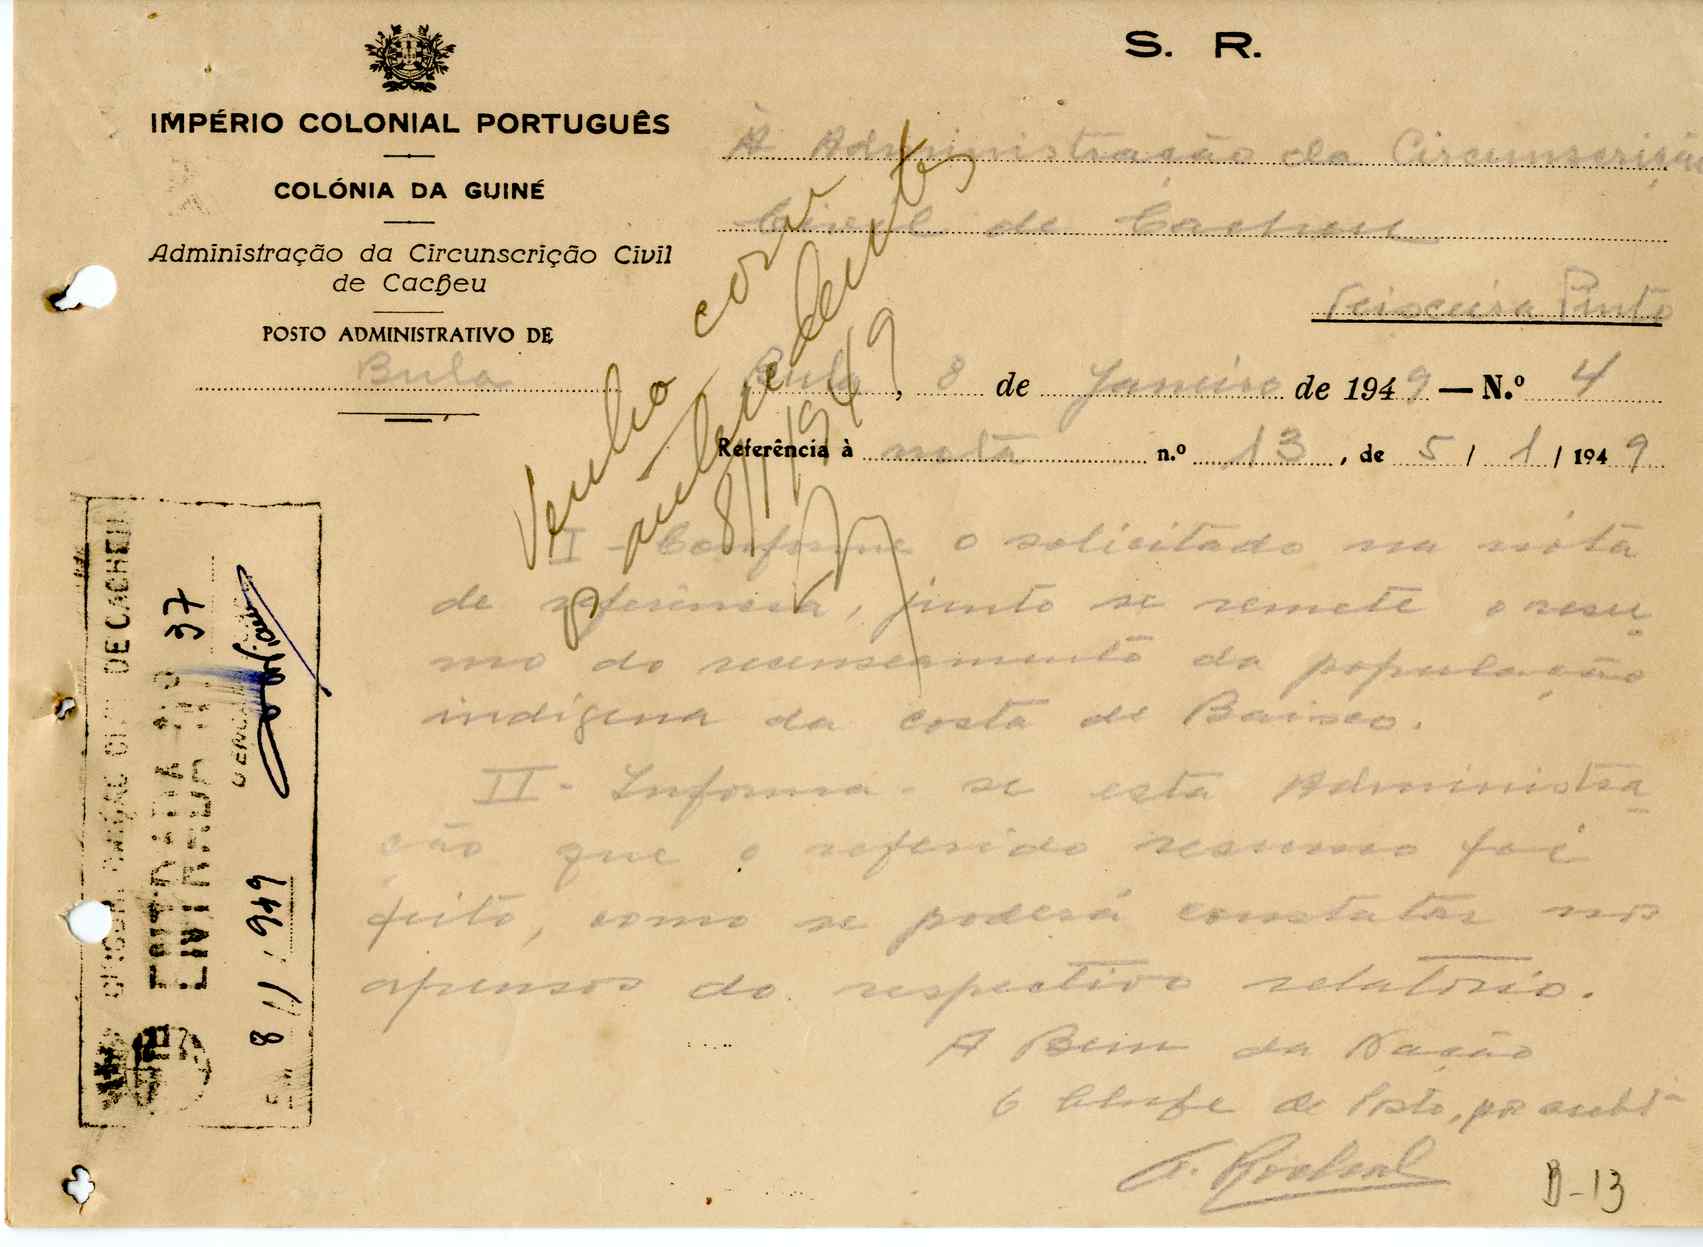 S. R.
IMPÉRIO COLONIAL PORTUGUÊS
COLÓNIA DA GUINÉ
Administração da Circunscrição Civil
de Cacheu
POSTO ADMINISTRATIVO DE
Bula
À Administração da Circunscrição
Civil de Cacheu
Teixeira Pinto
Bula, 8 de Janeiro de 1949 — N.º 4
Referência à nota n.º 13, de 5/1/1949
Venha com
antecedentes
8/1/1949
I - Conforme o solicitado na nóta
de referência, junto se remete o resu
mo do recenseamento da população
indígena da costa de Baixo.
II - Informa-se esta Administra
ção que o referido resumo foi
feito, como se poderá constatar nos
apensos do respectivo relatório.
A Bem da Nação
O Chefe de Posto,
DE CACHEU
ENTRADA Nº 37
8/1/1949
D-13